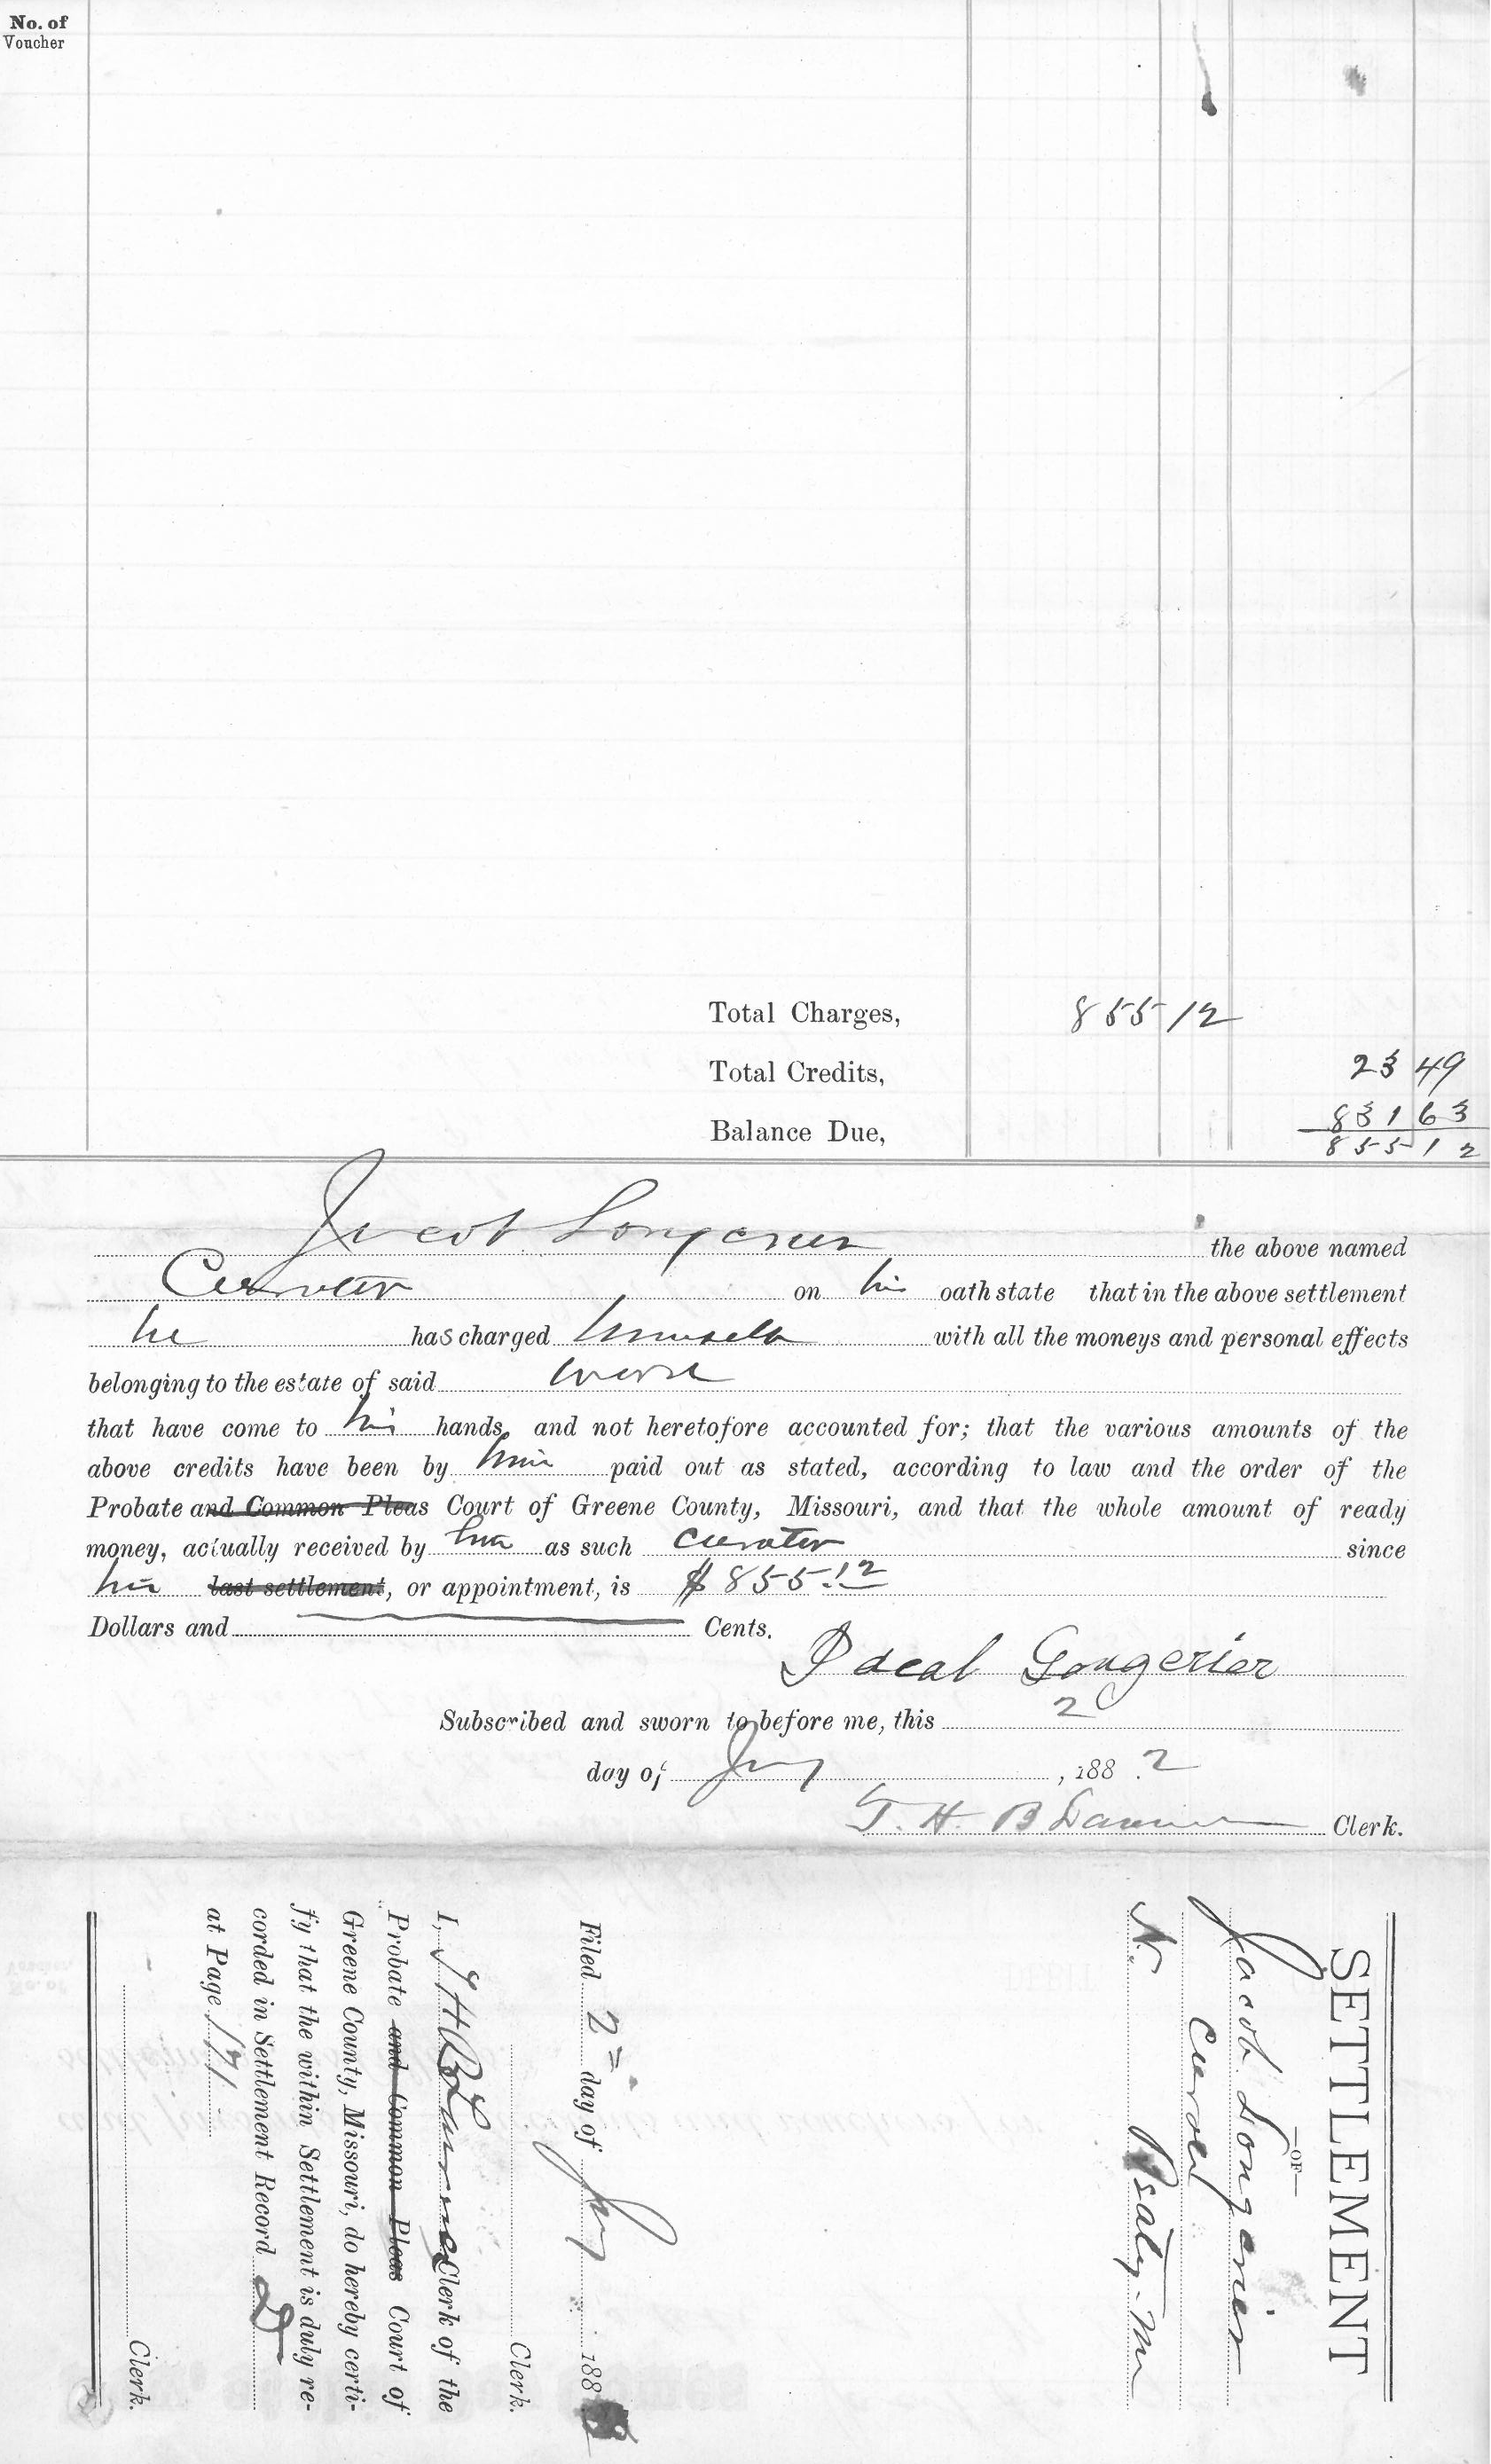 No. of
Voucher
Total Charges, 855 12
Total Credits, 23 49
Balance Due, 831 63
855 12
Jacob Longerier the above named
Curator on his oath state that in the above settlement
he has charged himself with all the moneys and personal effects
belonging to the estate of said ward
that have come to his hands, and not heretofore accounted for; that the various amounts of the
above credits have been by him paid out as stated, according to law and the order of the
Probate and Common Pleas Court of Greene County, Missouri, and that the whole amount of ready
money, actually received by him as such curator since
his last settlement, or appointment, is $855.12
Dollars and Cents.
Jacob Longerier
Subscribed and sworn to before me, this 2
day of Jany, 188 2
T. H. B. Clerk.
SETTLEMENT
—OF—
Jacob Longerier
Curator
N.
Filed 2 day of Jany 188
Clerk.
I, T H B Clerk of the
Probate and Common Pleas Court of
Greene County, Missouri, do hereby certi-
fy that the within Settlement is duly re-
corded in Settlement Record D
at Page 171
Clerk.